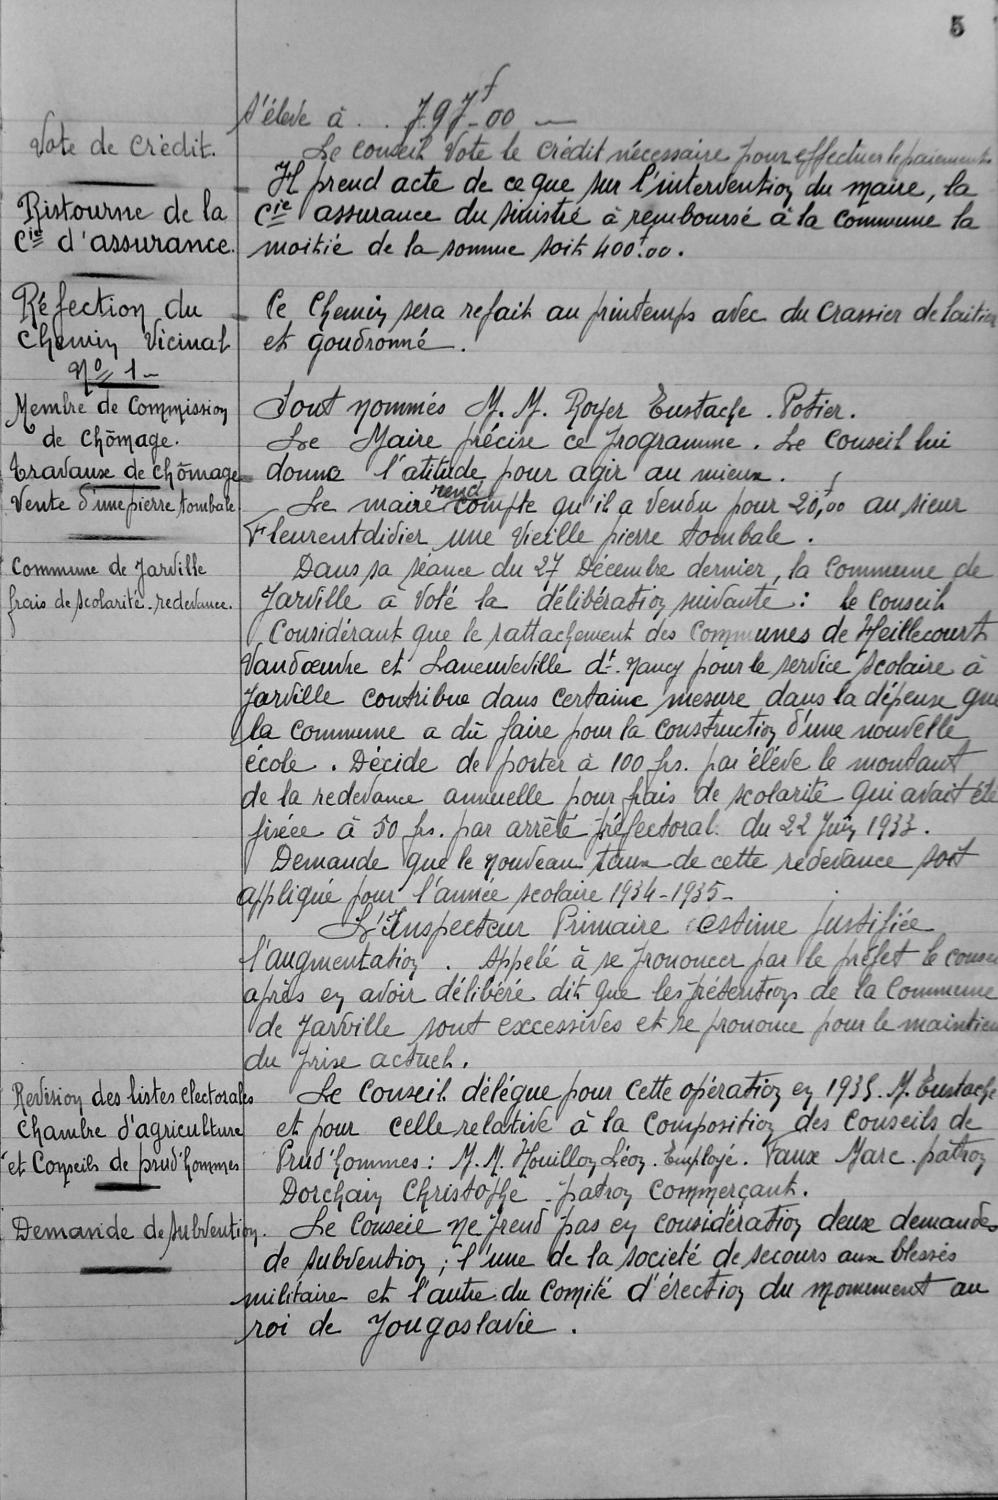 5
s'élève à . . 797f-00 —
Vote de Crédit.
Le Conseil Vote le Crédit nécessaire pour effectuer le paiement
Il prend acte de ce que sur l'intervention du maire, la
Ristourne de la
Cie assurance du sinistré à remboursé à la commune la
Cie d'assurance.
moitié de la somme soit 400f.00.
Réfection du
Ce Chemin sera refait au printemps avec du crassier de laitier
Chemin Vicinal
et goudronné.
No 1-
Membre de Commission
Sont nommés M. M. Royer Eustache. Potier.
de Chômage.
Le Maire précise ce programme. Le Conseil lui
Travaux de chômage
donna l'atitude pour agir au mieux.
Vente d'une pierre tombale
Le maire rend compte qu'il a vendu pour 20f,00 au sieur
Fleurentdidier une vieille pierre tombale.
Commune de Jarville
Dans sa séance du 27 Décembre dernier, la Commune de
frais de scolarité. redevance.
Jarville à voté la délibération suivante : le Conseil
Considérant que le rattachement des Communes de Heillecourt
Vandœuvre et Laneuveville dt. Nancy pour le service scolaire à
Jarville contribue dans certaine mesure dans la dépense que
la Commune a dû faire pour la construction d'une nouvelle
école. Décide de porter à 100 frs. par élève le montant
de la redevance annuelle pour frais de scolarité qui avait été
fixée à 50 frs. par arrêté préfectoral du 22 Juin 1933.
Demande que le nouveau taux de cette redevance soit
appliqué pour l'année scolaire 1934-1935-
L'Inspecteur Primaire estime justifiée
l'augmentation. Appelé à se prononcer par le préfet le conseil
après en avoir délibéré dit que les prétentions de la Commune
de Jarville sont excessives et se prononce pour le maintien
du prix actuel.
Revision des listes electorales
Le Conseil délégue pour cette opération en 1935. M. Eustache
Chambre d'agriculture
et pour celle relative à la Composition des Conseils de
et Conseils de prud'hommes
Prud'hommes : M. M. Houillon Léon. Employé. Vaux Marc. patron
Dorchain Christophe. patron Commerçant.
Demande de Subvention.
Le Conseil ne prend pas en considération deux demandes
de subvention ; l'une de la société de secours aux blessés
militaire et l'autre du Comité d'érection du monument au
roi de Yougoslavie.